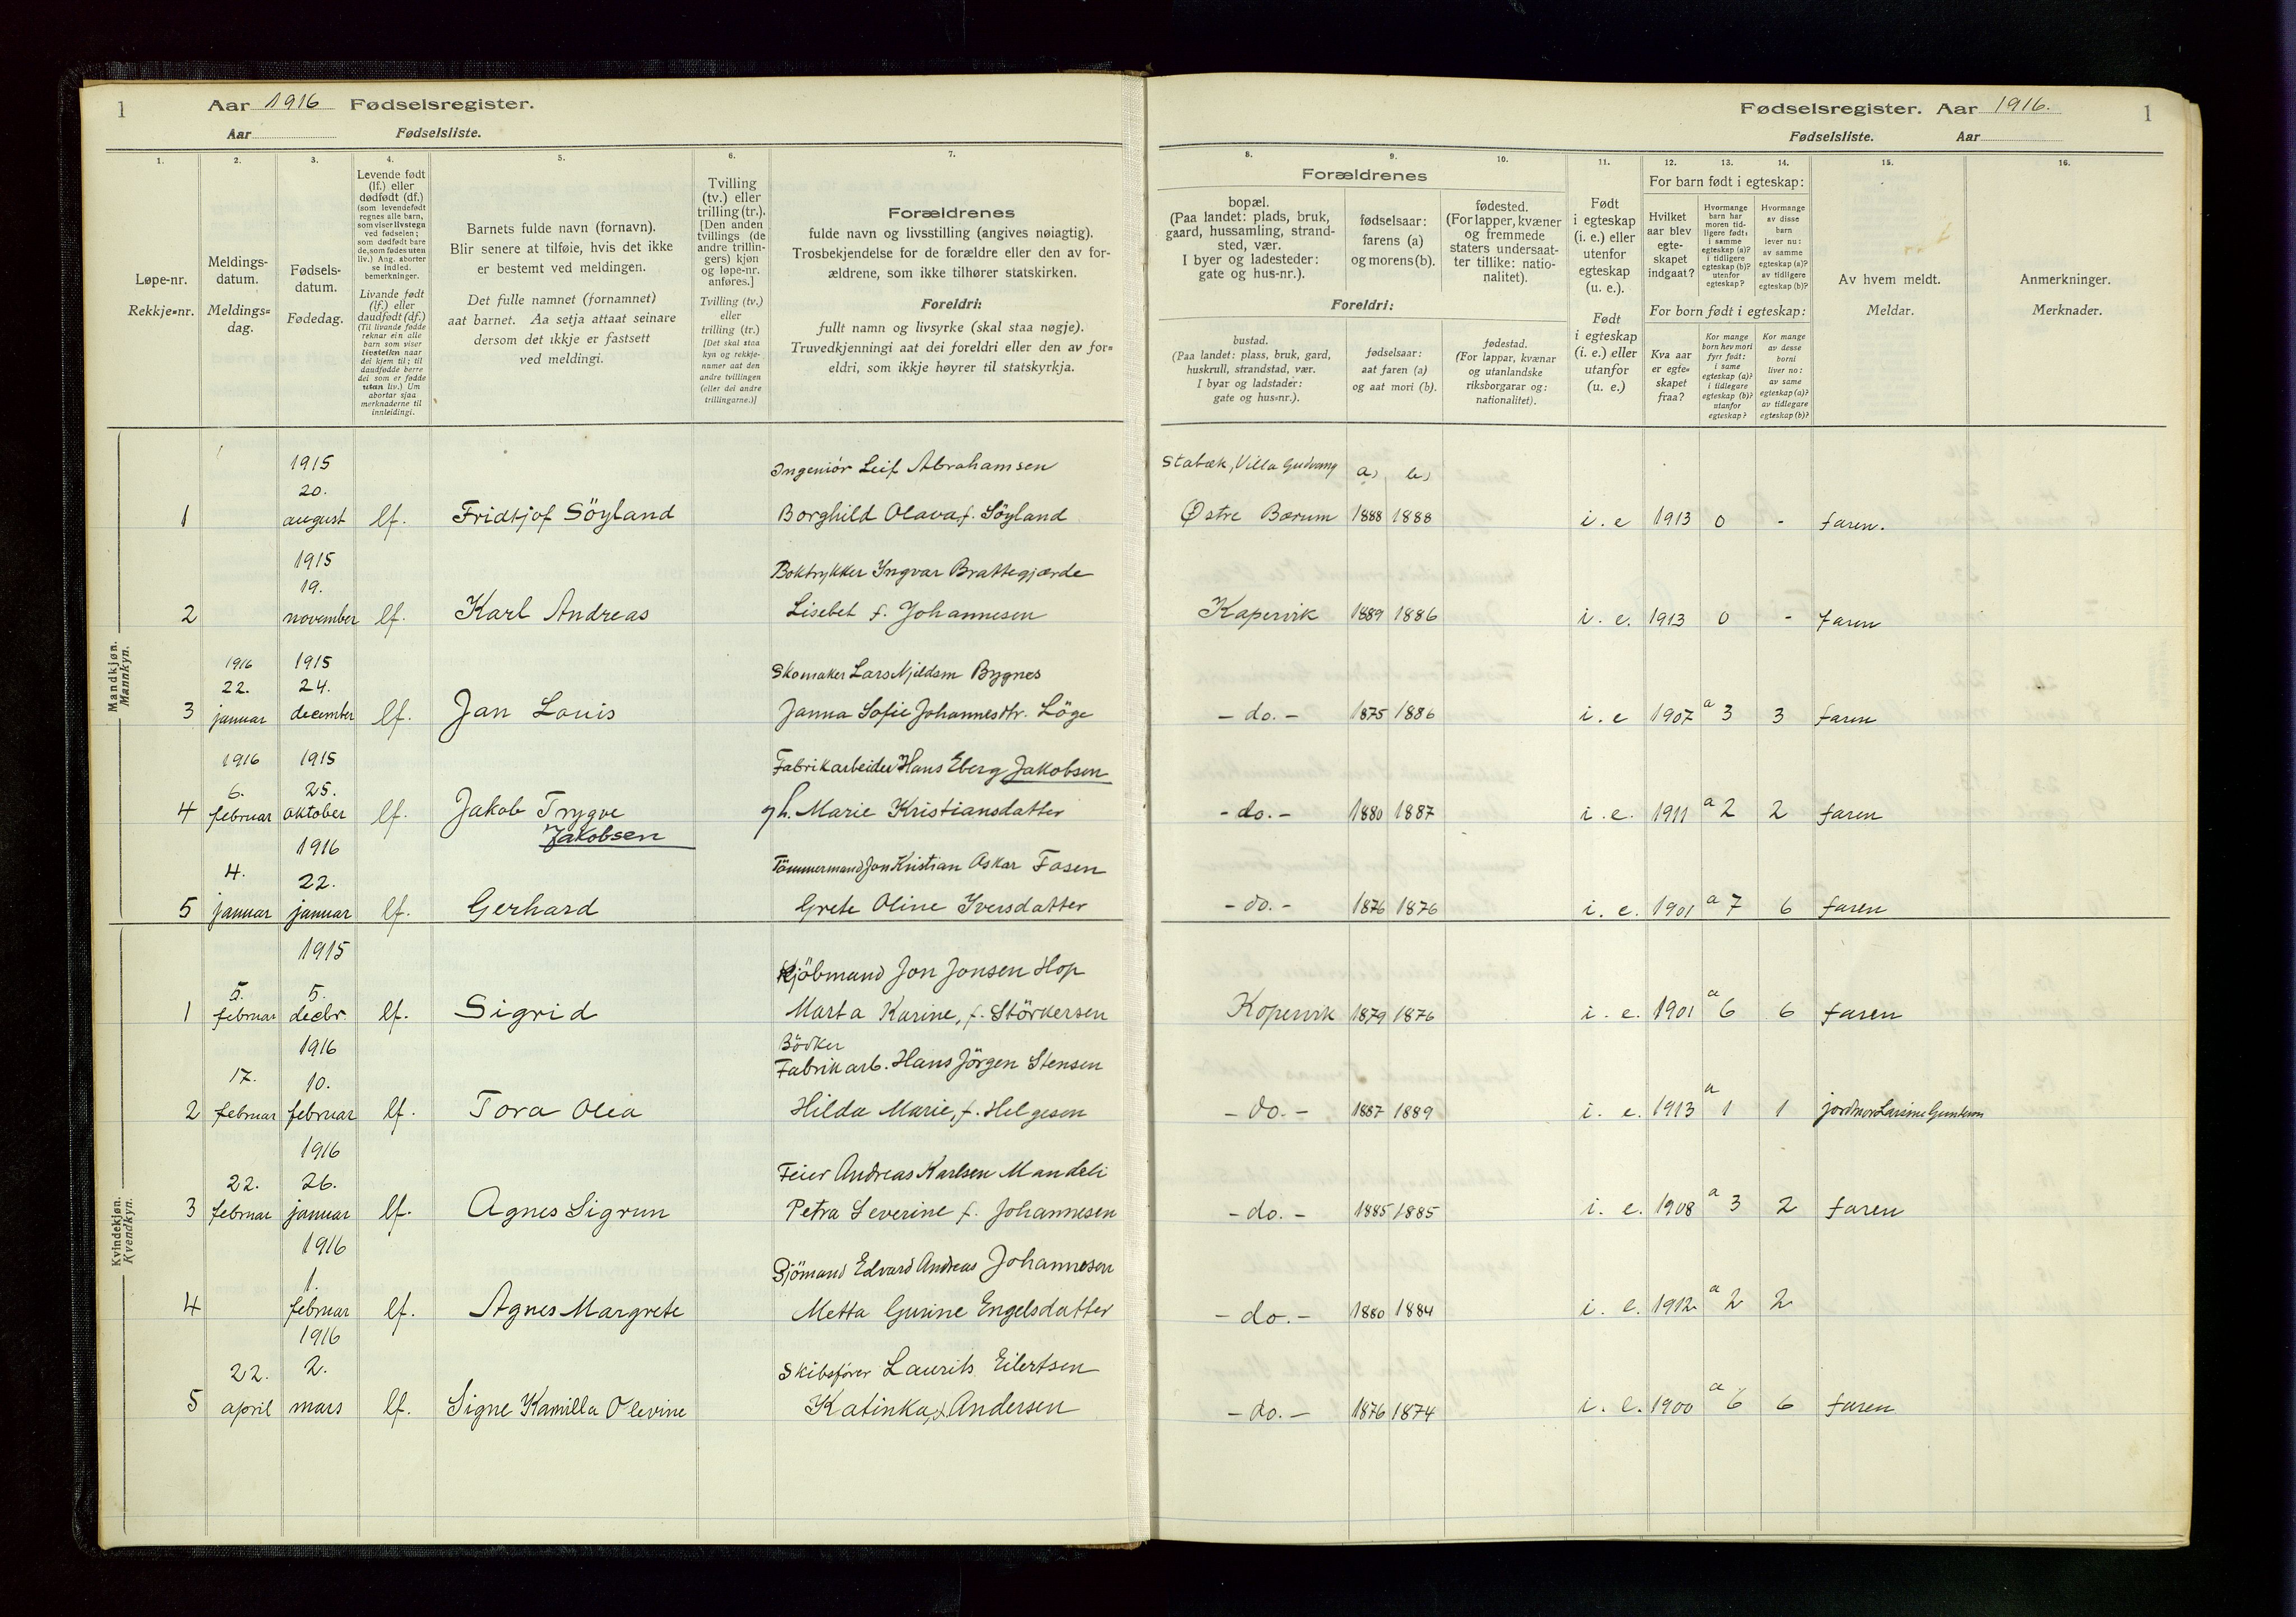 1 Aar 1916 Fødselsregister.
Aar Fødselsliste.
Fødselsregister. Aar 1916. 1
Fødselsliste. Aar
1. 2. 3. 4. 5. 6. 7.
Løpe-nr.
Rekkje-nr.
Meldings-
datum.
Meldings-
dag.
Fødsels-
datum.
Fødedag.
Levende født
(lf.) eller
dødfødt (df.)
(som levendefødt
regnes alle barn,
som viser livstegn
ved fødselen;
som dødfødt bare
de, som fødes uten
liv.) Ang. aborter
se indled.
bemerkninger.
Livande født
(lf.) eller
daudfødt (df.)
(Til livande fødde
reknar ein alle
barn som viser
livsteikn naar
dei kjem til; til
daudfødde berre
dei som er fødde
utan liv.) Um
abortar sjaa
merknaderne til
innleidingi.
Barnets fulde navn (fornavn).
Blir senere at tilføie, hvis det ikke
er bestemt ved meldingen.
Det fulle namnet (fornamnet)
aat barnet. Aa setja attaat seinare
dersom det ikkje er fastsett
ved meldingi.
Tvilling
(tv.) eller
trilling (tr.).
[Den anden
tvillings (de
andre trillin-
gers) kjøn
og løpe-nr.
anføres.]
Tvilling (tv.)
eller
trilling (tr.)
[Det skal staa
kyn og rekkje-
numer aat den
andre tvillingen
(eller dei andre
trillingarne.)]
Forældrenes
fulde navn og livsstilling (angives nøiagtig).
Trosbekjendelse for de forældre eller den av for-
ældrene, som ikke tilhører statskirken.
Foreldri:
fullt namn og livsyrke (skal staa nøgje).
Truvedkjenningi aat dei foreldri eller den av for-
eldri, som ikkje høyrer til statskyrkja.
8. 9. 10. 11. 12. 13. 14. 15. 16.
Forældrenes
bopæl.
(Paa landet: plads, bruk,
gaard, hussamling, strand-
sted, vær.
I byer og ladesteder:
gate og hus-nr.).
fødselsaar:
farens (a)
og morens (b).
fødested.
(For lapper, kvæner
og fremmede
staters undersaat-
ter tillike: natio-
nalitet).
Foreldri:
bustad.
(Paa landet: plass, bruk, gard,
huskrull, strandstad, vær.
I byar og ladstader:
gate og hus-nr.).
fødselsaar:
aat faren (a)
og aat mori (b).
fødestad.
(For lappar, kvænar
og utanlandske
riksborgarar og:
nationalitet).
Født
i egteskap
(i. e.) eller
utenfor
egteskap
(u. e.).
Født
i egteskap
(i. e.) eller
utanfor
(u. e.)
For barn født i egteskap:
Hvilket
aar blev
egte-
skapet
indgaat?
Hvormange
barn har
moren tid-
ligere født:
i samme
egteskap (a)?
i tidligere
egteskap (b)?
utenfor
egteskap?
Hvormange
av disse
barn
lever nu:
av samme
egteskap (a)?
av tidligere
egteskap (b)?
For born født i egteskap:
Kva aar
er egte-
skapet
fraa?
Kor mange
born hev mori
fyrr født:
i same
egteskap (a)?
i tidlegare
egteskap (b)?
utanfor
egteskap?
Kor mange
av desse
borni
liver no:
av same
egteskap (a)?
av tidlegare
egteskap (b)?
Av hvem meldt.
Meldar.
Anmerkninger.
Merknader.
Mandkjøn.
Mannkyn.
1915 Ingeniör Leif Abrahamsen Stabæk, Villa a) b)
20.
1 august lf. Fridtjof Söyland Borghild Olava f. Söyland Østre Bærum 1888 1888 i. e 1913 0 - faren.
1915 Boktrykker Yngvar Brattegjærde
19.
2 november lf. Karl Andreas Lisebet f. Johannesen Kopervik 1889 1886 i. e. 1913 0 - faren
1916 1915 Skomaker Lars Bygnes
22. 24.
3 januar december lf. Jan Louis Janna Sofie Johannesdtr. Löge - do. - 1875 1886 i. e 1907 a 3 3 faren
1916 1915 Fabrikarbeider Hans Eberg Jakobsen
6. 25.
4 februar oktober lf. Jakob Trygve gh. Marie Kristiansdatter - do. - 1880 1887 i. e. 1911 a 2 2 faren
Jakobsen
1916
4. 22. Tömmermand Jon Kristian Askar Fosen
5 januar januar lf. Gerhard Grete Oline Iversdatter - do. - 1876 1876 i. e. 1901 a 7 6 faren
Kvindekjøn.
Kvendkyn.
1915 Kjöbmand Jon Jonsen Hop
5. 5.
1 februar decbr. lf. Sigrid Marta Karine, f. Störkersen Kopervik 1879 1876 i. e. 1901 a 6 6 faren
1916 Bödker
17. 10. Fabrikarb. Hans Jörgen Stensen
2 februar februar lf. Tora Olea Hilda Marie, f. Helgesen - do. - 1887 1889 i. e. 1913 a 1 1 jordmor
1916
22. 26. Feier Andreas Karlsen Mandeli
3 februar januar lf. Agnes Sigrun Petra Severine f. Johannesen - do. - 1885 1885 i. e. 1908 a 3 2 faren
1916 Sjömand Edvard Andreas Johannesen
1.
4 februar lf. Agnes Margrete Metta Gurine Engelsdatter - do. - 1880 1884 i. e. 1912 a 2 2
1916
22. 2. Skibsförer Laurits Eilertsen
5 april mars lf. Signe Kamilla Olevine Katinka, f. Andersen - do. - 1876 1874 i. e. 1900 a 6 6 faren